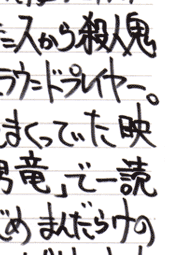 ニスから殺人鬼
ラウンドプレイヤー。
まくっていた映
男竜」で一読
じめまんだらけの